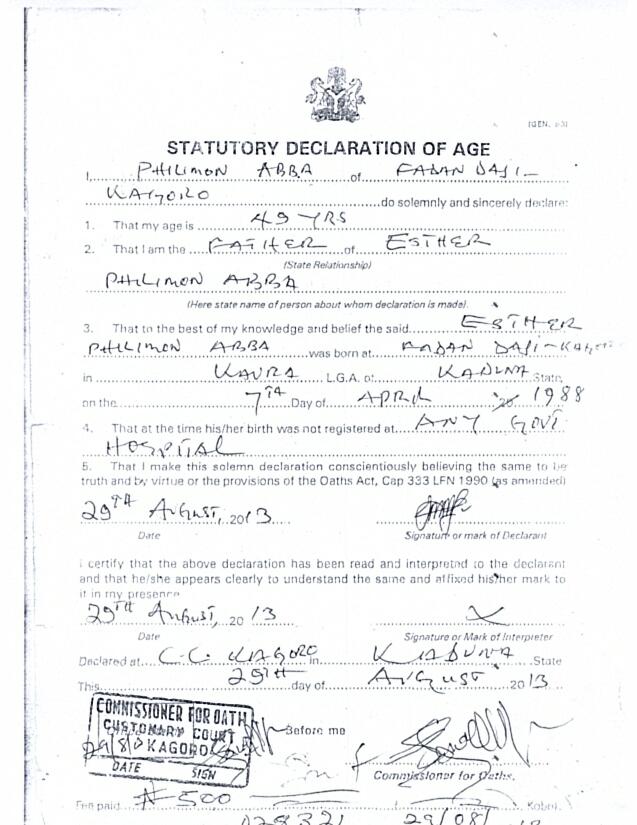 STATUTORY DECLARATION OF AGE
I, PHILIMON ABBA of FADAN DAJI-
KAGORO do solemnly and sincerely declare:
1. That my age is 49 YRS
2. That I am the FATHER of ESTHER
(State Relationship)
PHILIMON ABBA
(Here state name of person about whom declaration is made).
3. That to the best of my knowledge and belief the said ESTHER
PHILIMON ABBA was born at FADAN DAJI-KAGORO
in KAURA L.G.A. of KADUNA State,
on the 7TH Day of APRIL 1988
4. That at the time his/her birth was not registered at ANY GOVT
HOSPITAL
5. That I make this solemn declaration conscientiously believing the same to be
truth and by virtue or the provisions of the Oaths Act, Cap 333 LFN 1990 (as amended)
29TH AUGUST, 2013
Date Signature or mark of Declarant
I certify that the above declaration has been read and interpreted to the declarant
and that he/she appears clearly to understand the same and affixed his/her mark to
it in my presence
29TH AUGUST, 2013 X
Date Signature or Mark of Interpreter
Declared at C.C. KAGORO in KADUNA State
This 29TH day of AUGUST 2013
COMMISSIONER FOR OATH
CUSTOMARY COURT
KAGORO
DATE SIGN
Before me
Commissioner for Oaths.
Fee paid ₦ 500 Kobo.
29/08/